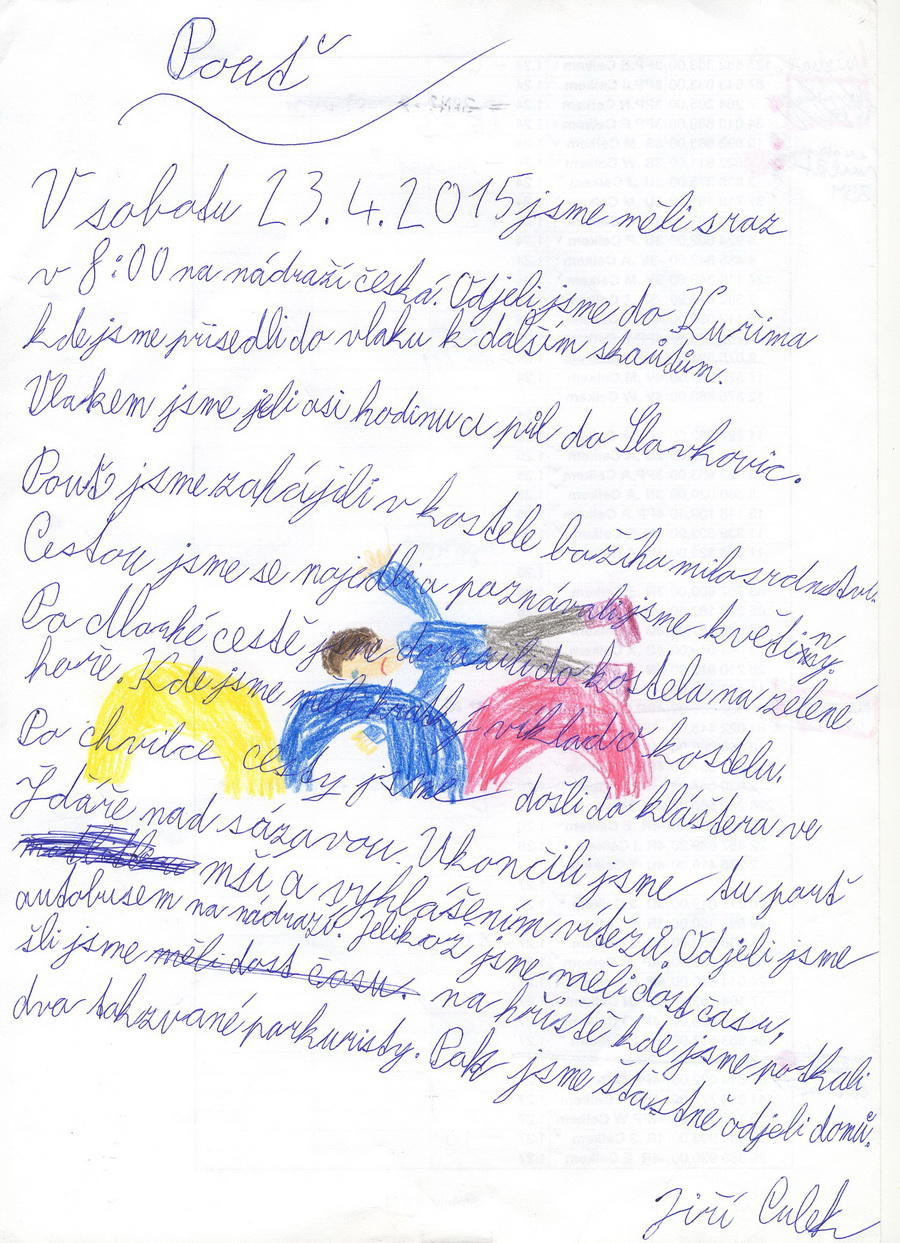 Pouť
V sobotu 23.4.2015 jsme měli sraz
v 8:00 na nádraží česká. Odjeli jsme do Kuřima
kde jsme přisedli do vlaku k dalším skautům.
Vlakem jsme jeli asi hodinu a půl do Slavkovic.
Pouť jsme zahájili v kostele božího milosrdnství.
Cestou jsme se najedli a poznávali jsme květiny.
Po dlouhé cestě jsme dorazili do kostela na zelené
hoře. Kde jsme měli krátký víklad o kostelu.
Po chvilce cesty jsme došli do kláštera ve
Ždáře nad sázavou. Ukončili jsme tu pouť
mší a vyhlášením vítězů. Odjeli jsme
autobusem na nádraží. Jelikož jsme měli dost času,
šli jsme měli dost času. na hřiště kde jsme potkali
dva takzvané parkuristy. Pak jsme šťastně odjeli domů.
Jiří Culek